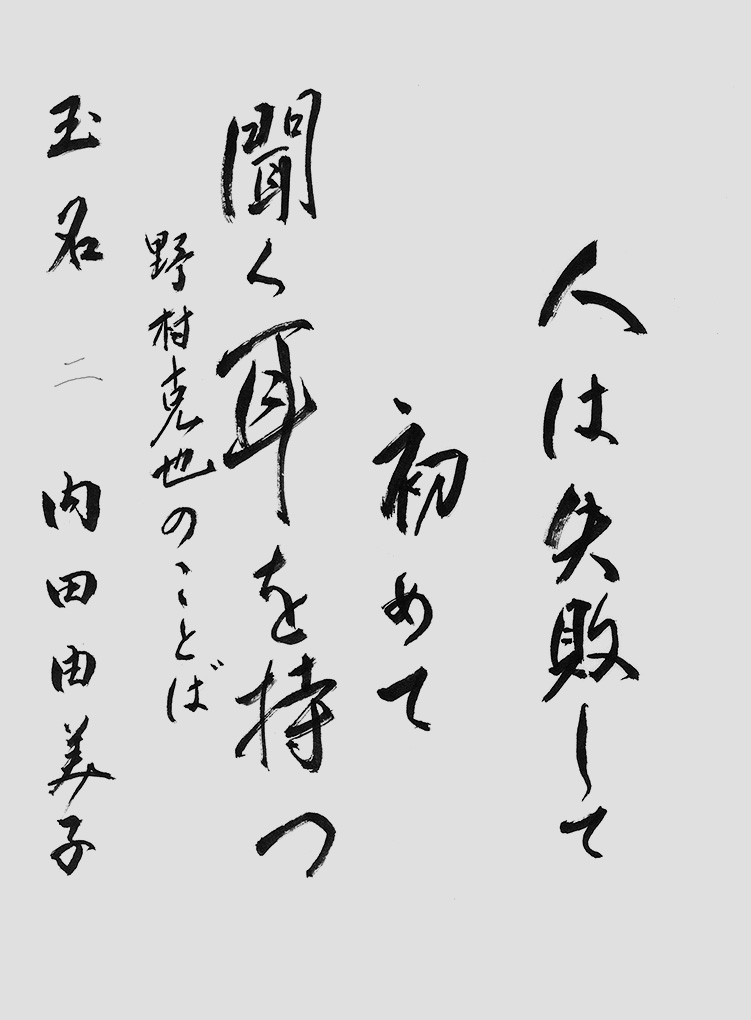 人は失敗して
初めて
聞く耳を持つ
野村克也のことば
玉名 二 内田由美子